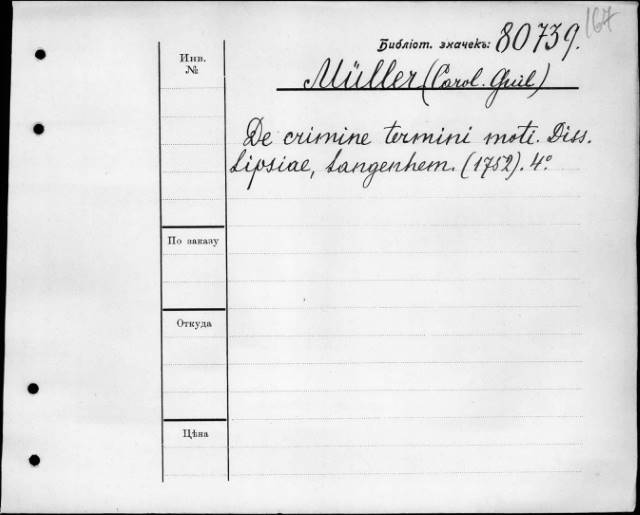 167
Библіот. значекъ: 80739.
Инв.
№
Müller (Carol. Guil)
De crimine termini moti. Diss.
Lipsiae, Langenhem. (1752). 4°.
По заказу
Откуда
Цѣна